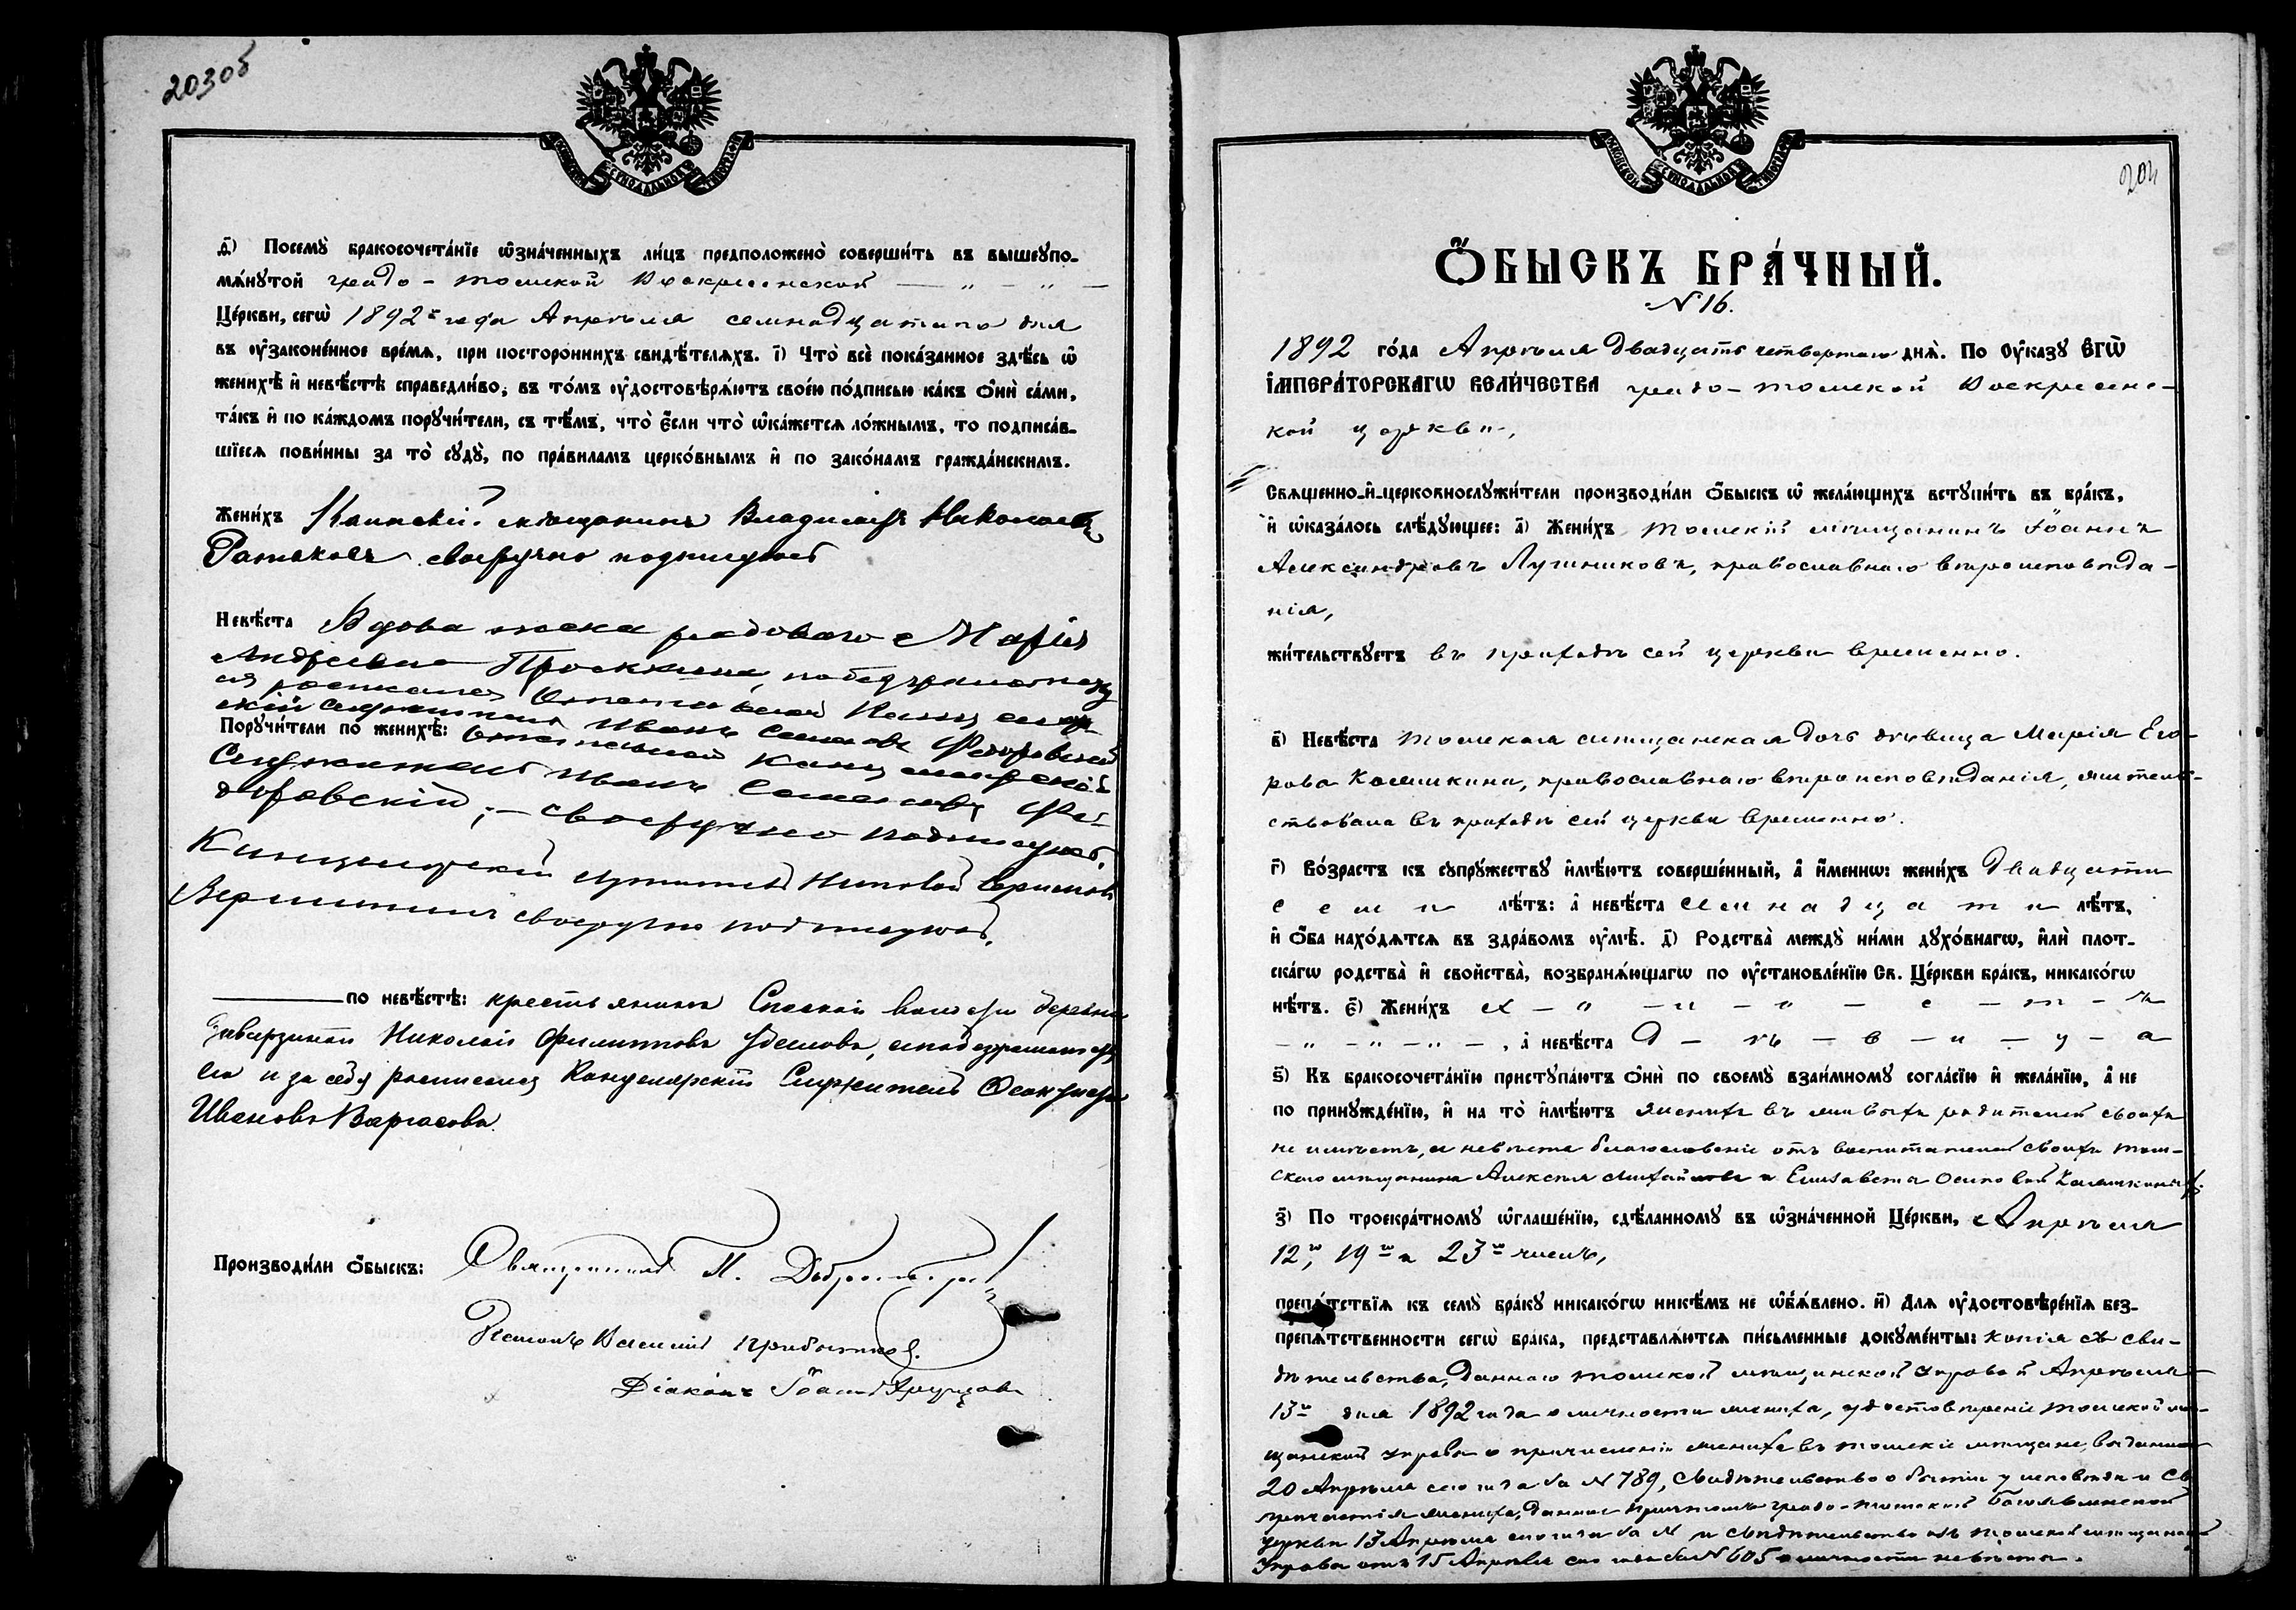 203об
МОСКОВСКОЙ СѴНОДАЛЬНОЙ ТИПОГРАФІИ
д҃) Посемꙋ̀ бракосочета́нїе ѡ҆зна́ченныхъ ли́цъ предположено̀ соверши́ть въ вышеꙋпо-
мѧ́нꙋтой градо-Томской Воскресенской
Це́ркви, сегѡ̀ 1892го года Апрѣля семнадцатаго дня
въ ᲂу҆законе́нное вре́мѧ, при посторо́ннихъ свидѣ́телѧхъ. і҃) Что̀ всѐ пока́занное здѣ́сь ѡ҆
женихѣ̀ и҆ невѣ́стѣ справедли́во, въ то́мъ ᲂу҆достовѣрѧ́ютъ свое́ю по́дписью ка́къ ѻ҆нѝ са́ми,
та́къ и҆ по ка́ждомъ порꙋчи́тели, съ тѣ́мъ, что̀ є҆́сли что̀ ѡ҆ка́жетсѧ ло́жнымъ, то подписа́в-
шїесѧ пови́нны за то̀ сꙋдꙋ̀, по пра́виламъ церко́внымъ и҆ по зако́намъ гражда́нскимъ.
Жени́хъ Каинскій мѣщанинъ Владиміръ Николаевъ
своеручно подписуюсь
Невѣ́ста Вдова жена рядового Марія
Андреевна
Иванъ Семеновъ Федоровскій
Порꙋчи́тели по женихѣ̀:
Служитель Иванъ Семеновъ Фе-
доровскій, — своеручно подписуюсь,
Канцелярскій служитель
своеручно подписуюсь.
по невѣ́стѣ: крестьянинъ Спаской волости деревни
Николай Филипповъ
его и за себя росписался Канцелярскій Служитель
Ивановъ
Производи́ли ѻ҆́быскъ: Священникъ П.
Василій
Діаконъ Іоаннъ
204
МОСКОВСКОЙ СѴНОДАЛЬНОЙ ТИПОГРАФІИ
Ѻ҆́БЫСКЪ БРА́ЧНЫЙ.
N 16.
1892 го́да Апрѣля двадцать четвертаго днѧ̀. По ᲂу҆ка́зꙋ Є҆ГѠ̀
І҆МПЕРА́ТОРСКАГѠ ВЕЛИ́ЧЕСТВА градо-Томской Воскресенс-
кой церкви,
Свѧще́нно-и҆-церковнослꙋжи́тели производи́ли ѻ҆́быскъ ѡ҆ жела́ющихъ встꙋпи́ть въ бра́къ,
и҆ ѡ҆каза́лось слѣ́дꙋющее: а҃) Жени́хъ Томскій мѣщанинъ Іоаннъ
Александровъ Лучниковъ, православнаго вѣроисповѣда-
нія,
жи́тельствꙋетъ въ приходѣ сей церкви временно.
в҃) Невѣ́ста Томская мѣщанская дочь дѣвица Марія Его-
рова Калашкина, православнаго вѣроисповѣданія, житель-
ствовала въ приходѣ сей церкви временно.
г҃) Во́зрастъ къ сꙋпрꙋ́жествꙋ и҆мѣ́ютъ соверше́нный, а҆ и҆́меннѡ: жени́хъ двадцати
семи лѣ́тъ: а҆ невѣ́ста семнадцати лѣ́тъ,
и҆ ѻ҆́ба нахо́дѧтсѧ въ здра́вомъ ᲂу҆мѣ̀. д҃) Родства̀ междꙋ̀ ни́ми дꙋхо́внагѡ, и҆лѝ плот-
ска́гѡ родства̀ и҆ свойства̀, возбранѧ́ющагѡ по ᲂу҆становле́нїю Св. Це́ркви бра́къ, никако́гѡ
нѣ́тъ. є҃) Жени́хъ х – о – л – о – с – т – ъ
– „ – „ – „ –, а҆ невѣ́ста д – ѣ – в – и – ц – а
ѕ҃) Къ бракосочета́нїю пристꙋпа́ютъ ѻ҆нѝ по своемꙋ̀ взаи́мномꙋ согла́сїю и҆ жела́нїю, а҆ не
по принꙋжде́нїю, и҆ на то̀ и҆мѣ́ютъ женихъ въ живыхъ родителей своихъ
не имѣетъ, а невѣста благословеніе отъ воспитателей своихъ том-
скаго мѣщанина Алексѣя Михайлова и Елизаветы Осиповой Калашкиныхъ.
з҃) По троекра́тномꙋ ѡ҆глаше́нїю, сдѣ́ланномꙋ въ ѡ҆зна́ченной Це́ркви, Апрѣля
12го, 19го и 23го чиселъ,
препѧ́тствїѧ къ семꙋ̀ бра́кꙋ никако́гѡ никѣ́мъ не ѡ҆б̾ѧ́влено. и҃) Длѧ ᲂу҆достовѣре́нїѧ без-
препѧ́тственности сегѡ̀ бра́ка, представлѧ́ютсѧ пи́сьменные докꙋме́нты: копія съ сви-
дѣтельства, даннаго Томской мѣщанской управой Апрѣля
13го дня 1892 года о личности жениха, удостовѣреніе Томской мѣ-
щанской управы о причисленіи жениха въ томскіе мѣщане, выданное
20 Апрѣля сего года за N 789, свидѣтельство о бытіи у исповѣди и св.
причастія жениха, данное причтомъ градо-Томской Богоявленской
церкви 13 Апрѣля сего года за N и свидѣтельство изъ Томской мѣщанской
управы отъ 15 Апрѣля сего года за N 605 о личности невѣсты.